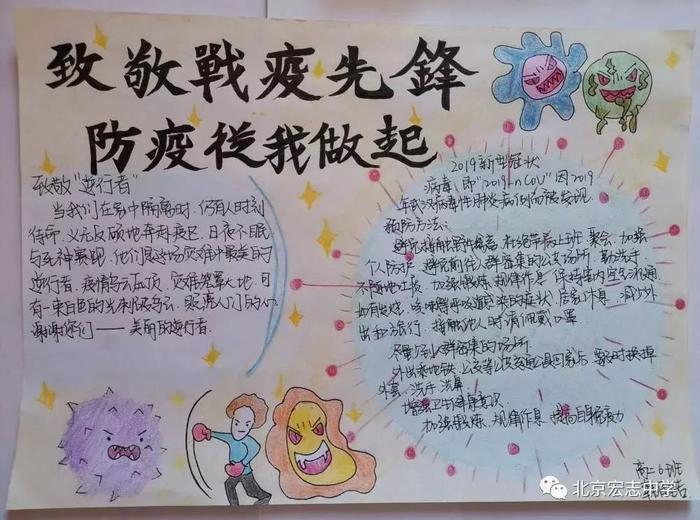 致敬戰疫先鋒
防疫從我做起
致敬"逆行者"
当我们在家中隔离时,仍有人时刻
待命,义无反顾地奔赴疫区,日夜不眠
与死神赛跑,他们是这场灾难中最美的
逆行者,疫情乌云压顶,灾难笼罩大地,可
有一束白色的光来
照亮人们的心
谢谢你们——美丽的逆行者.
2019新型冠状
病毒,即"2019-nCoV"因2019
年武汉病毒性肺炎病例而被发现
预防方法:
避免接触野生禽畜,杜绝带病上班、聚会,加强
个人防护,避免前往人群密集的公共场所,勤洗手
不随地吐痰,加强锻炼,规律作息,保持室内空气流通
如有发烧,咳嗽等呼吸道感染的症状,居家休息,减少外
出和旅行,接触他人时请佩戴口罩
尽量少到人群密集的场所
外出乘地铁,公交等公共交通工具回家后,要及时换掉
外套、洗手、洗鼻.
增强卫生健康意识
加强锻炼,规律作息,提高自身免疫力
高二6班
北京宏志中学